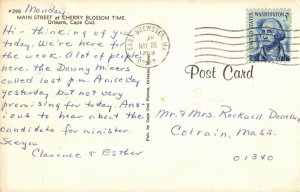 #298 Monday.
MAIN STREET at CHERRY BLOSSOM TIME.
Orleans, Cape Cod.
Hi - thinking of you
today. We're here for
the week. A lot of people
here. The Danny Miners
called last p.m. A nice day
yesterday but not very
promising for today. Anx-
ious to hear about the
candidate for minister.
See you
Clarence & Esther
MAY 25
WASHINGTON 5¢
Post Card
Mr. & Mrs. Rockwell Donelson
Colrain, Mass.
01340